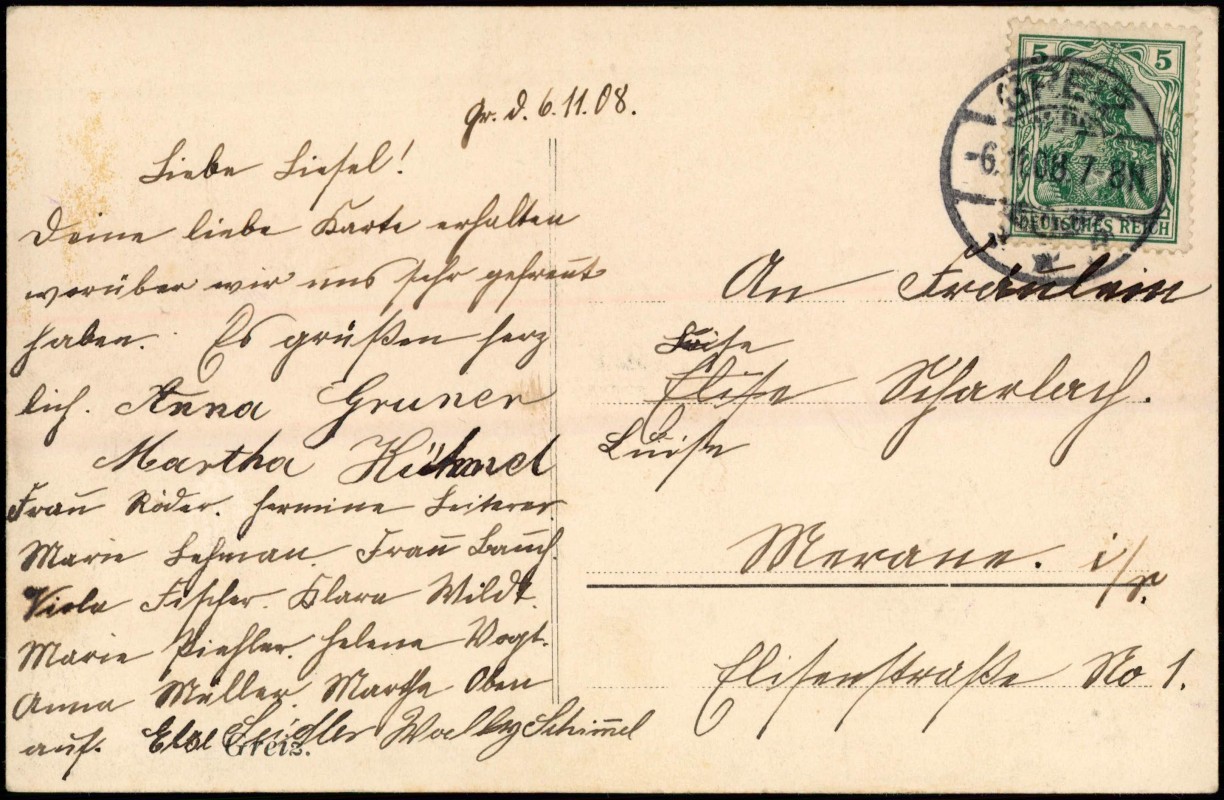 Gr. d. 6.11.08.
Liebe Liesel!
Deine liebe Karte erhalten
worüber wir uns sehr gefreut
haben. Es grüßen herz
lich. Anna Gruner
Martha Hühnel
Frau Röder. Hermine Leiterer
Marie Lehman. Frau Bauch.
Viola Fischer. Klara Wildt.
Marie Piehler. Helene Vogt.
Anna Müller. Martha Oben
auf. Else Seidler Wally Schimmel
Greiz.
5 5
GREIZ
-6.11.08. 7-8N
DEUTSCHES REICH
An Fräulein
Luise
Elise Scharlach.
Luise
Merane. i/S.
Elisenstraße No 1.